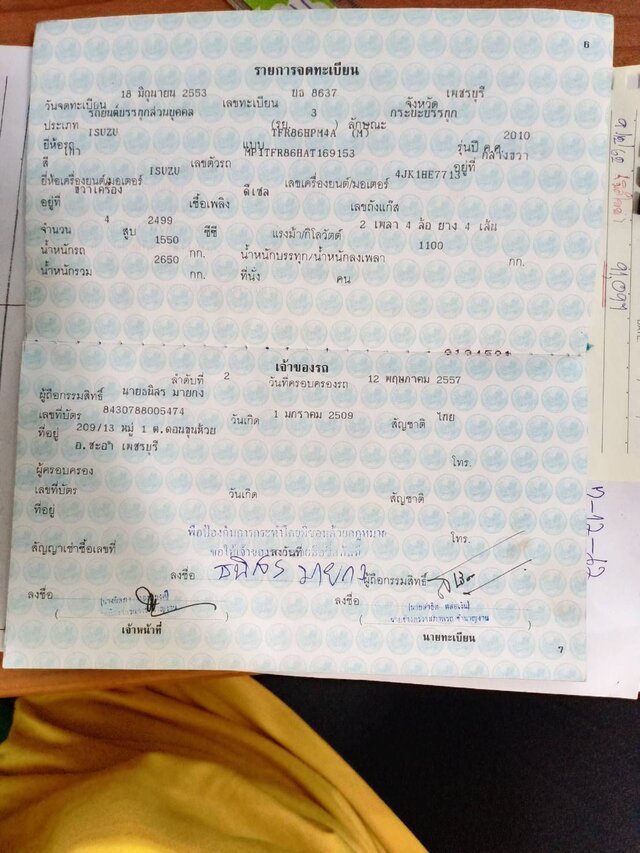 6
รายการจดทะเบียน
วันจดทะเบียน 18 มิถุนายน 2553 เลขทะเบียน บจ 8637 จังหวัด เพชรบุรี
ประเภท รถยนต์บรรทุกส่วนบุคคล (รย. 3 ) ลักษณะ กระบะบรรทุก
ยี่ห้อรถ ISUZU แบบ TFR86HPM4A (M) รุ่นปี ค.ศ. 2010
สี เทา เลขตัวรถ MP1TFR86HAT169153 อยู่ที่ กลางขวา
ยี่ห้อเครื่องยนต์/มอเตอร์ ISUZU เลขเครื่องยนต์/มอเตอร์ 4JK1HE7713
อยู่ที่ ขวาเครื่อง เชื้อเพลิง ดีเซล เลขถังแก๊ส
จำนวน 4 สูบ 2499 ซีซี แรงม้า/กิโลวัตต์ 2 เพลา 4 ล้อ ยาง 4 เส้น
น้ำหนักรถ 1550 กก. น้ำหนักบรรทุก/น้ำหนักลงเพลา 1100 กก.
น้ำหนักรวม 2650 กก. ที่นั่ง คน
เจ้าของรถ
ลำดับที่ 2 วันที่ครอบครองรถ 12 พฤษภาคม 2557
ผู้ถือกรรมสิทธิ์ นายธนิสร มายกง
เลขที่บัตร 8430788005474 วันเกิด 1 มกราคม 2509 สัญชาติ ไทย
ที่อยู่ 209/13 หมู่ 1 ต.ดอนขุนห้วย
อ.ชะอำ เพชรบุรี โทร.
ผู้ครอบครอง
เลขที่บัตร วันเกิด สัญชาติ
ที่อยู่ โทร.
เพื่อป้องกันการกระทำโดยมิชอบด้วยกฎหมาย
สัญญาเช่าซื้อเลขที่ ลงวันที่
ลงชื่อ ธนิสร มายกง ผู้ถือกรรมสิทธิ์
ลงชื่อ ลงชื่อ
นายช่างตรวจสภาพรถ ชำนาญงาน
เจ้าหน้าที่ นายทะเบียน
7
9-12-62